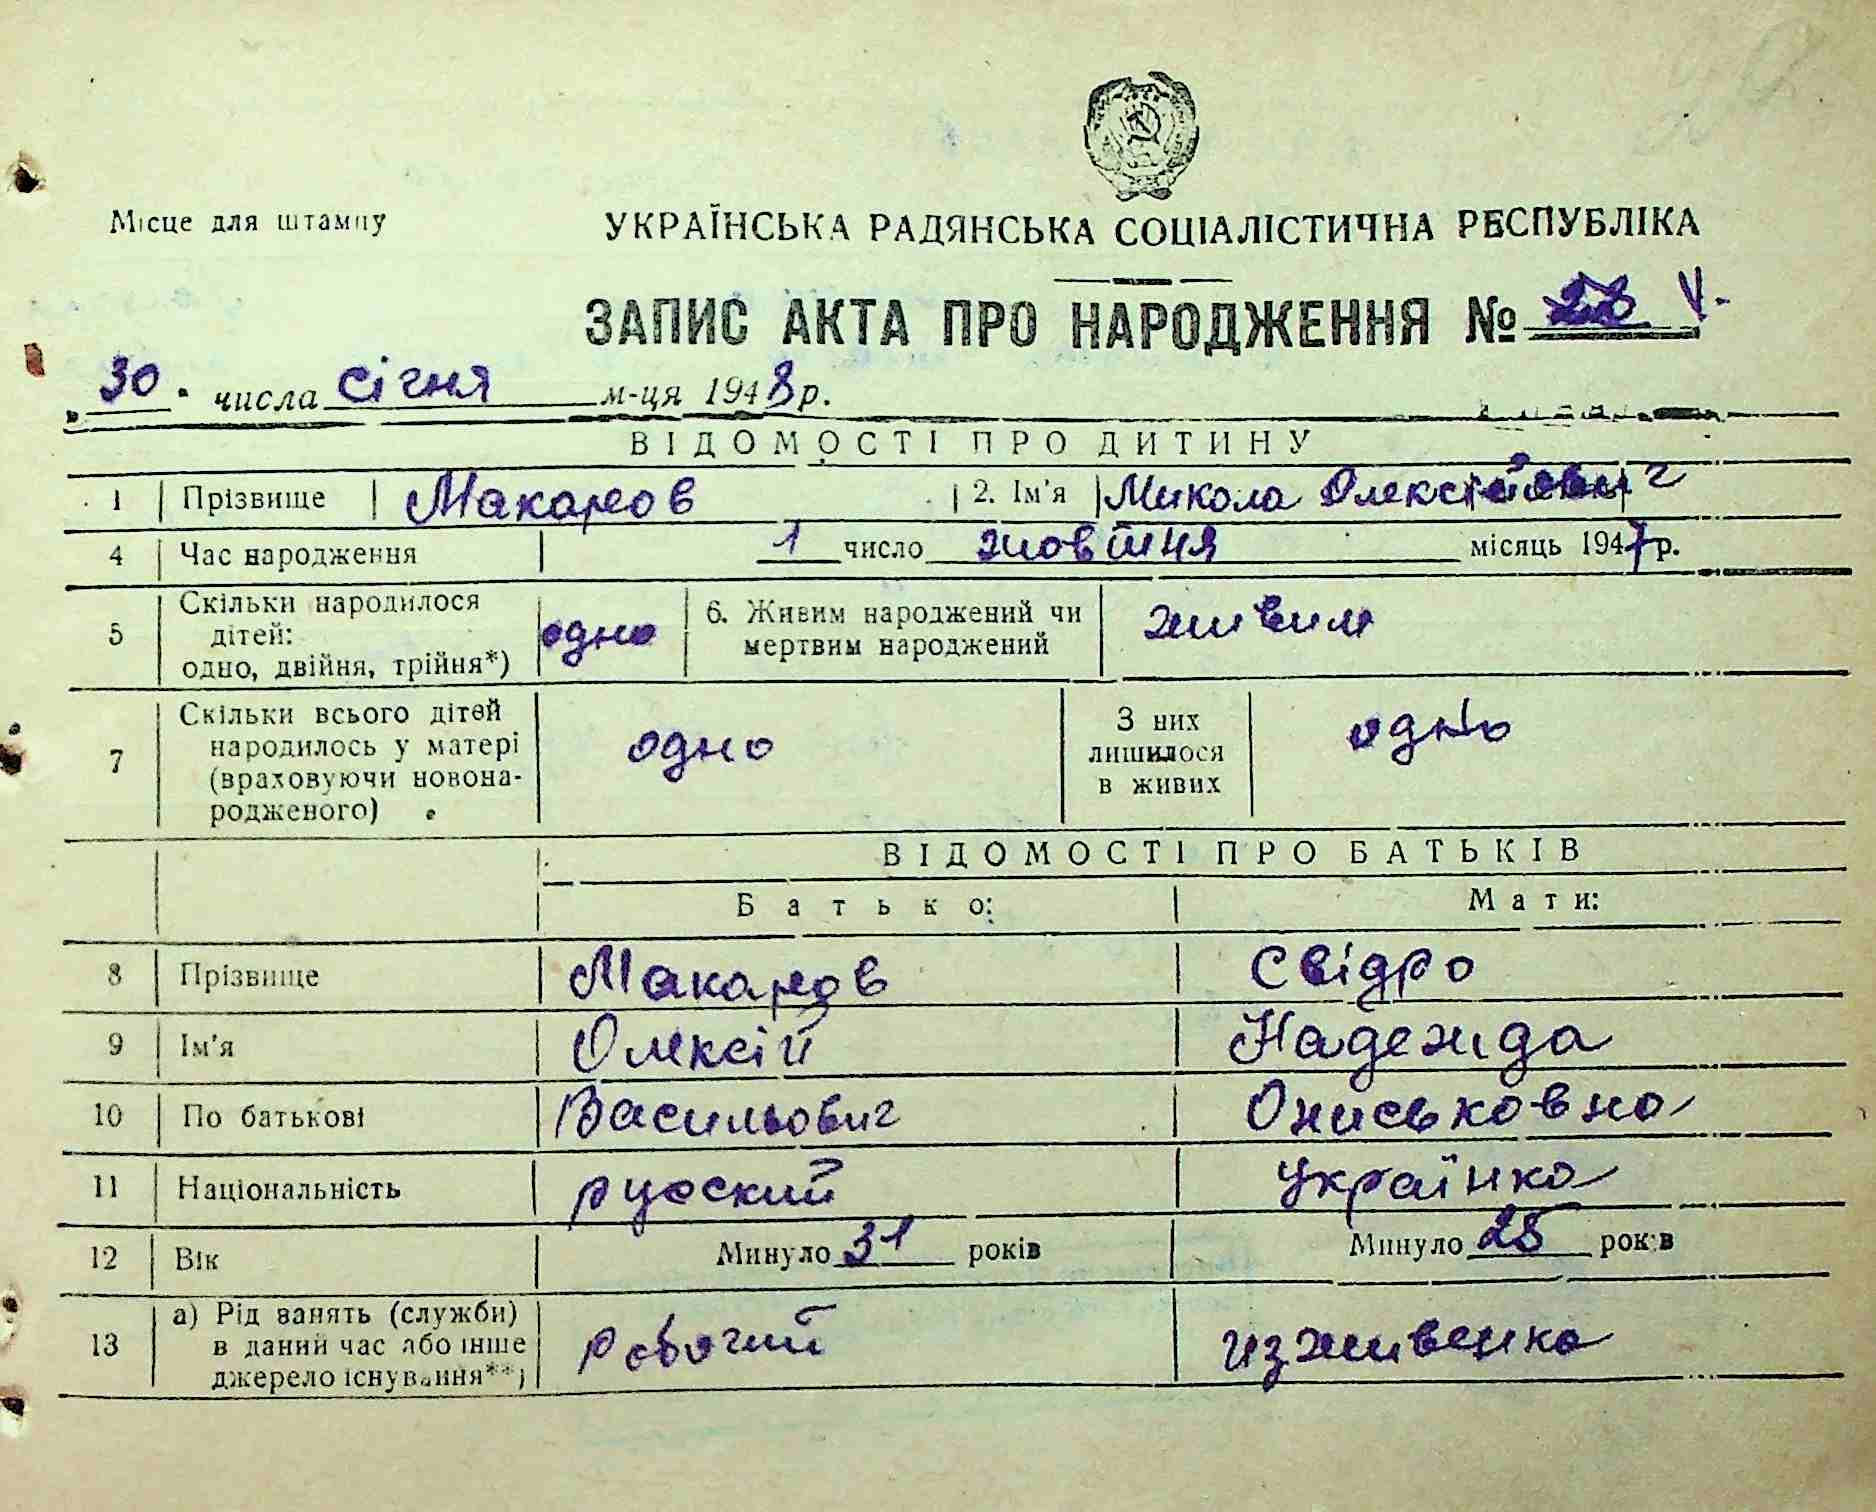 Місце для штампу
УКРАЇНСЬКА РАДЯНСЬКА СОЦІАЛІСТИЧНА РЕСПУБЛІКА
ЗАПИС АКТА ПРО НАРОДЖЕННЯ №
„30" числа січня м-ця 1948 р.
ВІДОМОСТІ ПРО ДИТИНУ
1 Прізвище Макаров 2. Ім'я Микола Олексійович
4 Час народження 1 число жовтня місяць 1947 р.
5 Скільки народилося дітей: одно, двійня, трійня*) одно 6. Живим народжений чи мертвим народжений живим
7 Скільки всього дітей народилось у матері (враховуючи новонародженого) одно З них лишилося в живих одно
ВІДОМОСТІ ПРО БАТЬКІВ
Батько: Мати:
8 Прізвище Макаров Свідро
9 Ім'я Олексій Надежда
10 По батькові Васильович Ониськовна
11 Національність русский українка
12 Вік Минуло 31 років Минуло 25 років
13 а) Рід занять (служби) в даний час або інше джерело існування**) робочий изживенка